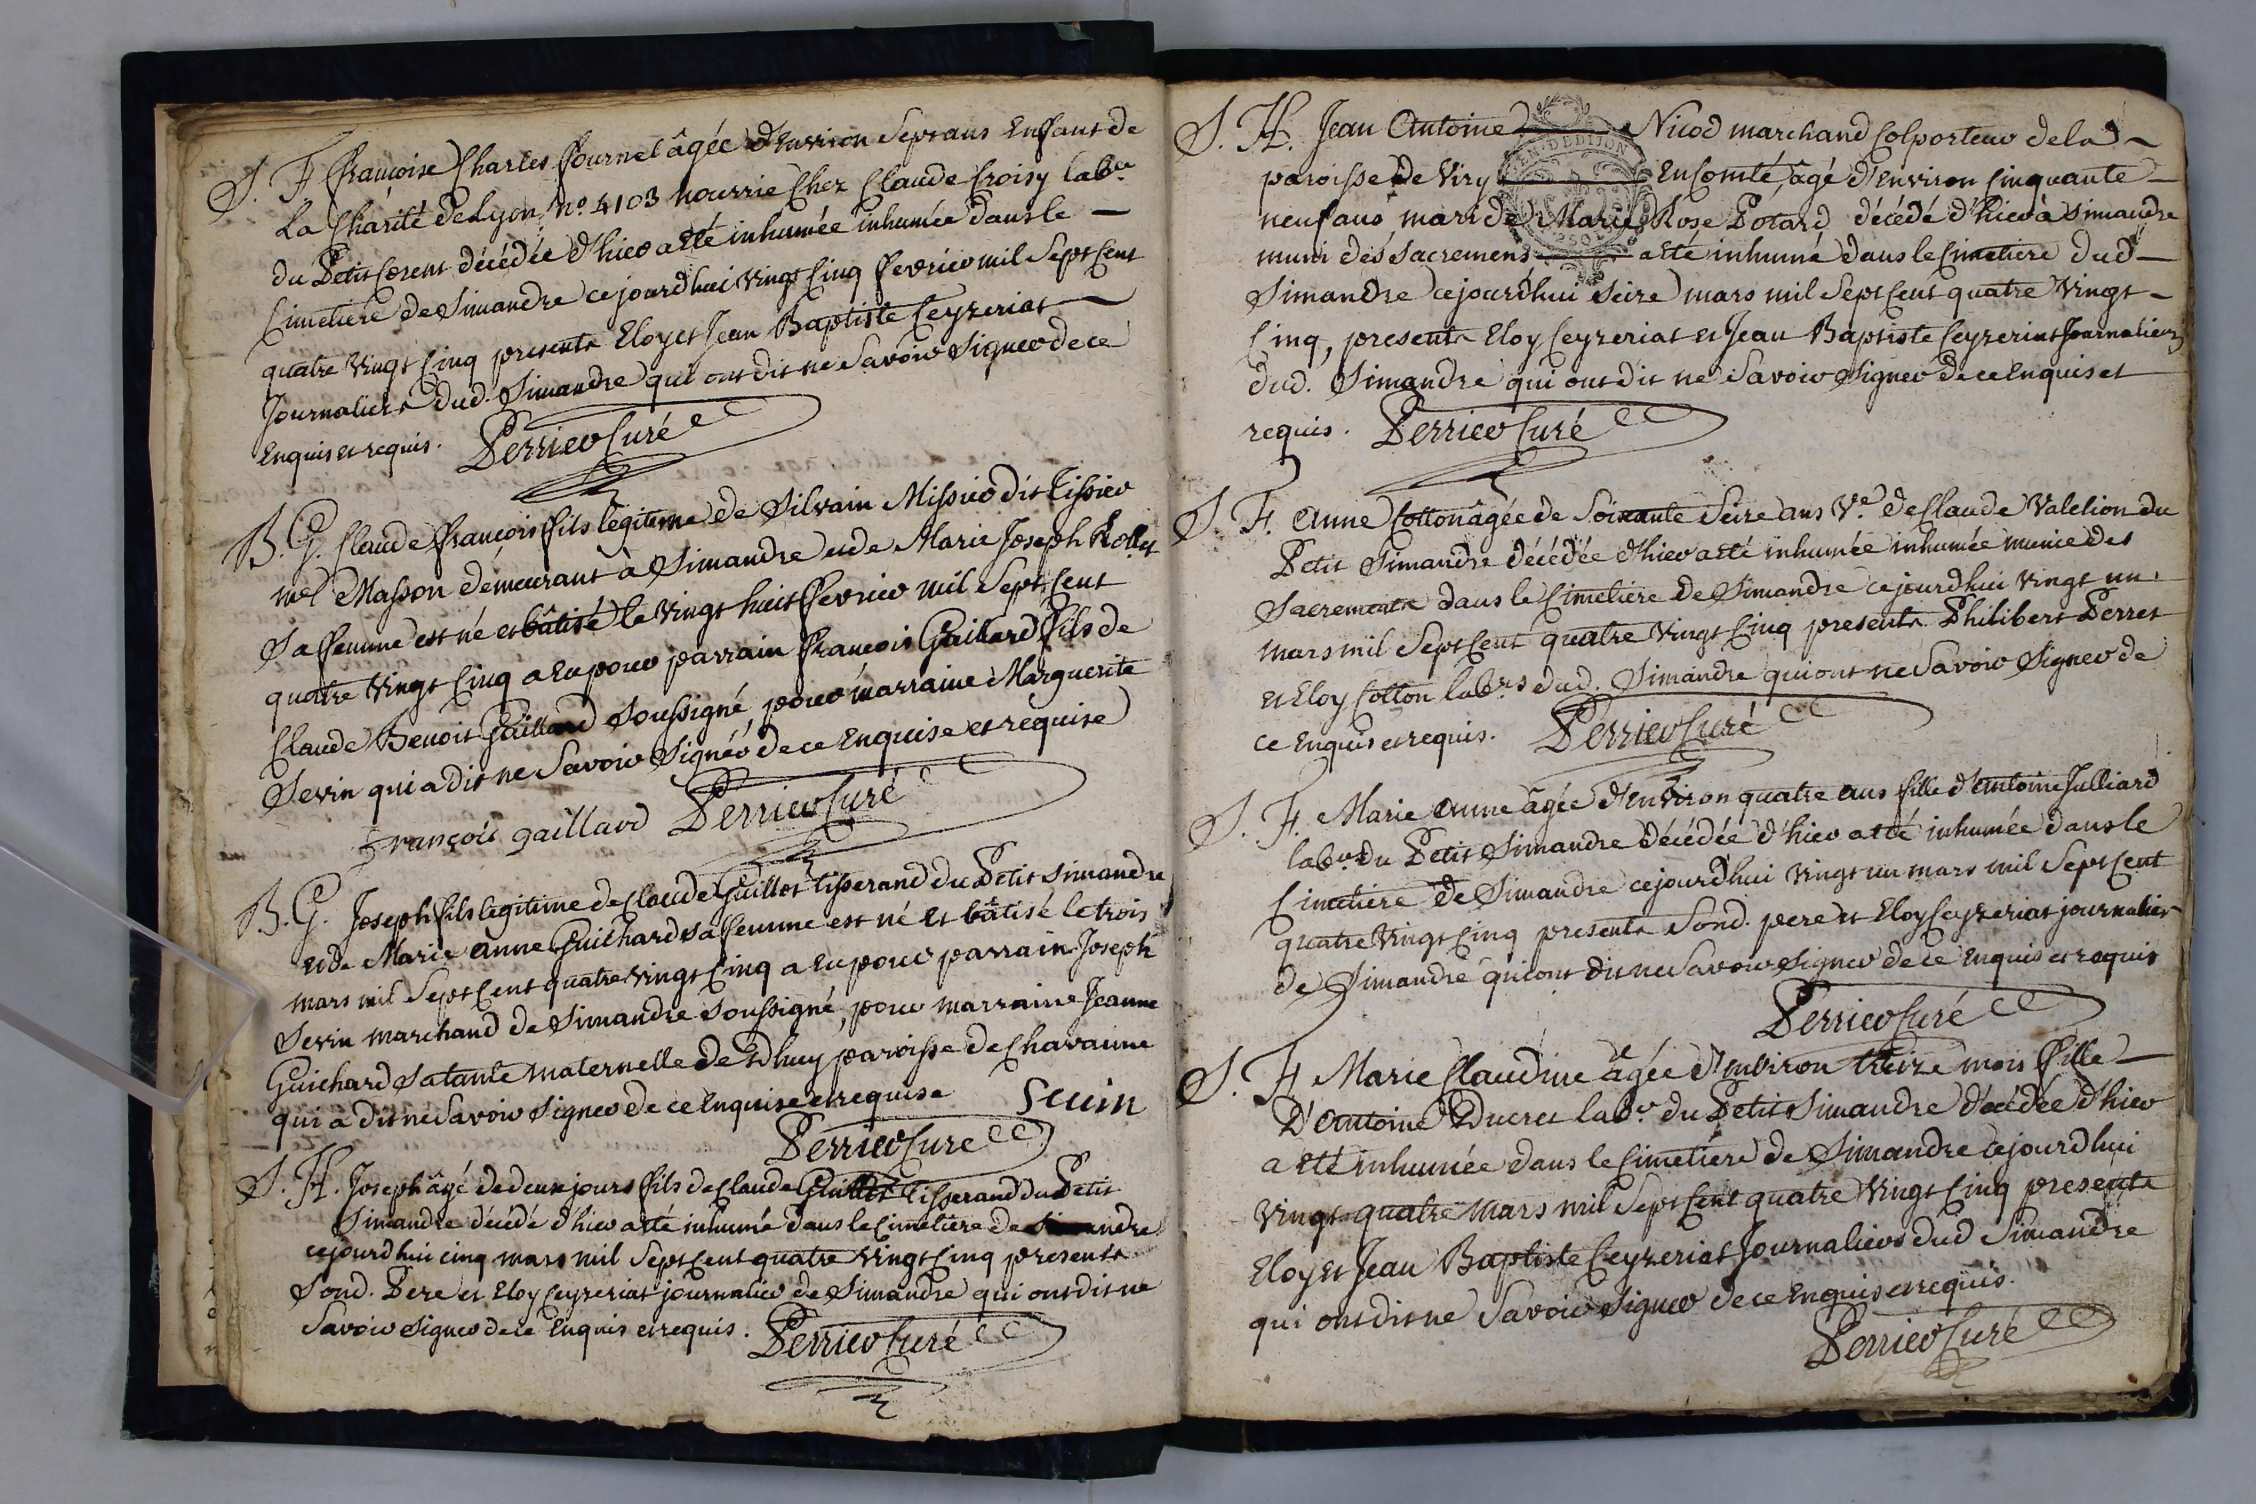 S. F. françoise Charles fournel âgée d'Environ Sept ans Enfant de
La Charité de Lyon, n° 4103 nourrie Chez Claude Croisy labr
du Petit Corent décédée d'hier a eté inhumée inhumée dans le
Cimetiere de Simandre ce jourd'hui vingt Cinq fevrier mil Sept Cent
quatre vingt Cinq presents Eloy et Jean Baptiste Ceyzeriat
Journaliers dud. Simandre qui ont dit ne Savoir Signer de ce
Enquis et requis. Perrier Curé
B. G. Claude françois fils légitime de Silvain Missier dit Tissier
me Masson demeurant à Simandre et de Marie Joseph Rollet
Sa femme est né et bâtisé le vingt huit fevrier mil Sept Cent
quatre vingt Cinq a eu pour parrain françois Gaillard fils de
Claude Benoit Gaillard Soussigné, pour marraine Marguerite
Sevin qui a dit ne Savoir Signer de ce Enquise et requise
françois gaillard Perrier Curé
B. G. Joseph fils legitime de Claude Guillot tisserand du Petit Simandre
et de Marie anne Guichard sa femme est né et bâtisé le trois
mars mil Sept Cent quatre vingt Cinq a eu pour parrain Joseph
Sevin marchand de Simandre Soussigné, pour marraine Jeanne
Guichard Sa tante maternelle de Dhuy paroisse de Chavanne
qui a dit ne Savoir Signer de ce Enquise et requise Sevin
Perrier Cure
S. H. Joseph âgé de deux jours fils de Claude Guillot tisserand du Petit
Simandre décédé d'hier a eté inhumé dans le Cimetiere de Simandre
cejourd'hui cinq mars mil Sept Cent quatre vingt Cinq presents
Sond. Pere et Eloy Ceyzeriat journalier de Simandre qui ont dit ne
Savoir Signer de ce Enquis et requis. Perrier Curé
S. H. Jean Antoine Nicod marchand Colporteur de la
paroisse de Viry En Comté, âgé d'environ Cinquante
neuf ans, mari de Marie Rose Potard décédé d'hier à Simandre
muni des Sacremens a eté inhumé dans le Cimetiere dud
Simandre cejourd'hui Seize mars mil Sept Cent quatre vingt
Cinq, presents Eloy Ceyzeriat et Jean Baptiste Ceyzeriat Journaliers
dud. Simandre qui ont dit ne Savoir Signer de ce Enquis et
requis. Perrier Curé
S. F. Anne Cotton âgée de Soixante Seize ans Ve de Claude Valelion du
Petit Simandre décédée d'hier a eté inhumée inhumée munie des
Sacrements dans le Cimetiere de Simandre cejourd'hui vingt un
mars mil Sept Cent quatre vingt Cinq presents Philibert Perret
et Eloy Cotton labrs dud. Simandre qui ont ne Savoir Signer de
ce Enquis et requis. Perrier Curé
S. F. Marie Anne âgée d'Environ quatre ans fille d'antoine Julliard
labr du Petit Simandre décédée d'hier a eté inhumée dans le
Cimetiere de Simandre cejourd'hui vingt un mars mil Sept Cent
quatre vingt Cinq presents Sond. pere et Eloy Ceyzeriat journalier
de Simandre qui ont dit ne Savoir Signer de ce Enquis et requis
Perrier Curé
S. F. Marie Claudine âgée d'Environ treize mois fille
D'antoine Ducret labr. du Petit Simandre décédée d'hier
a eté inhumée dans le Cimetiere de Simandre cejourd'hui
vingt quatre mars mil Sept Cent quatre vingt Cinq presents
Eloy et Jean Baptiste Ceyzeriat Journaliers dud Simandre
qui ont dit ne Savoir Signer de ce Enquis et requis.
Perrier Curé